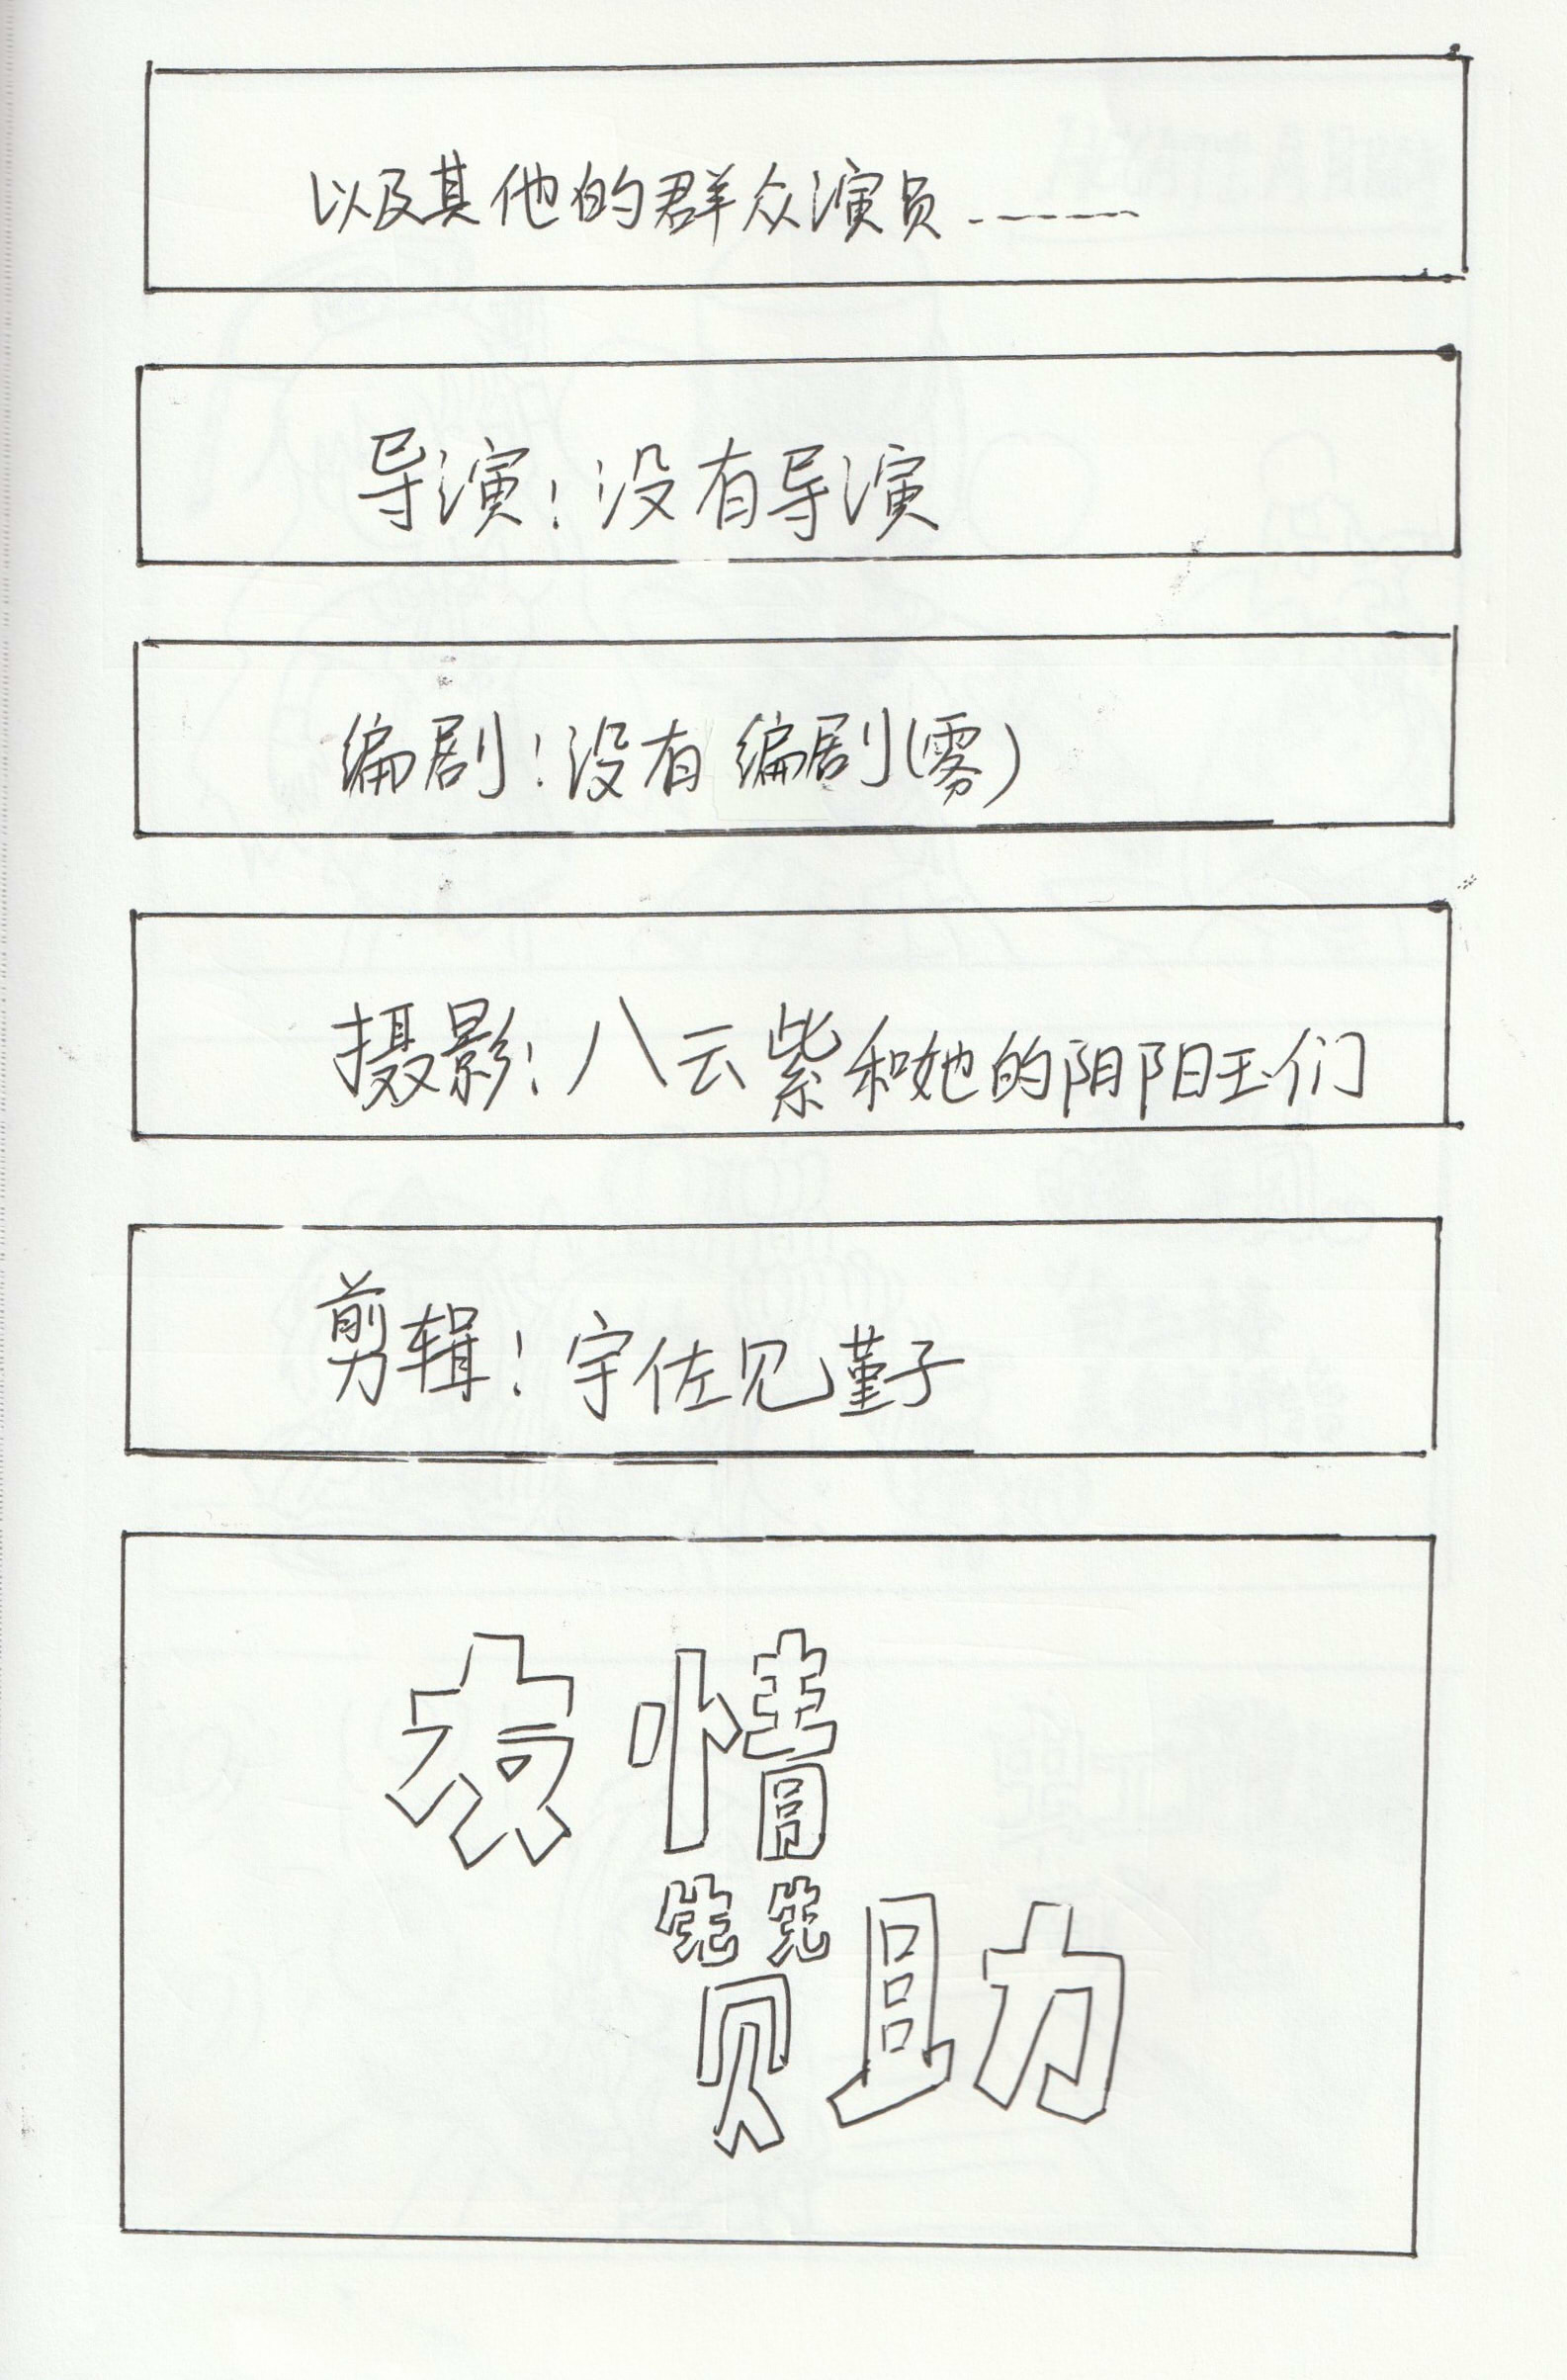 以及其他的群众演员……
导演：没有导演
编剧：没有编剧(雾)
摄影：八云紫和她的阴阳玉们
剪辑：宇佐见堇子
友情
赞助